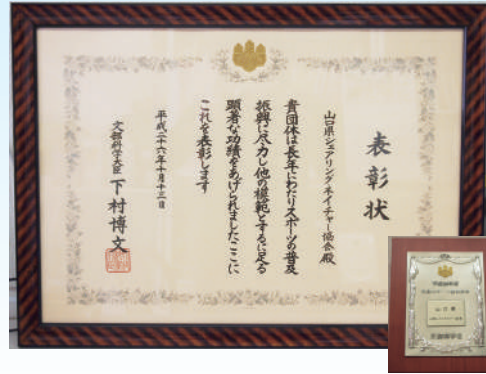 表彰状
山口県シェアリングネイチャー協会殿
貴団体は長年にわたりスポーツの普及
振興に尽力し他の模範とするに足る
顕著な功績をあげられましたここに
これを表彰します
平成二十六年十月十三日
文部科学大臣 下村博文